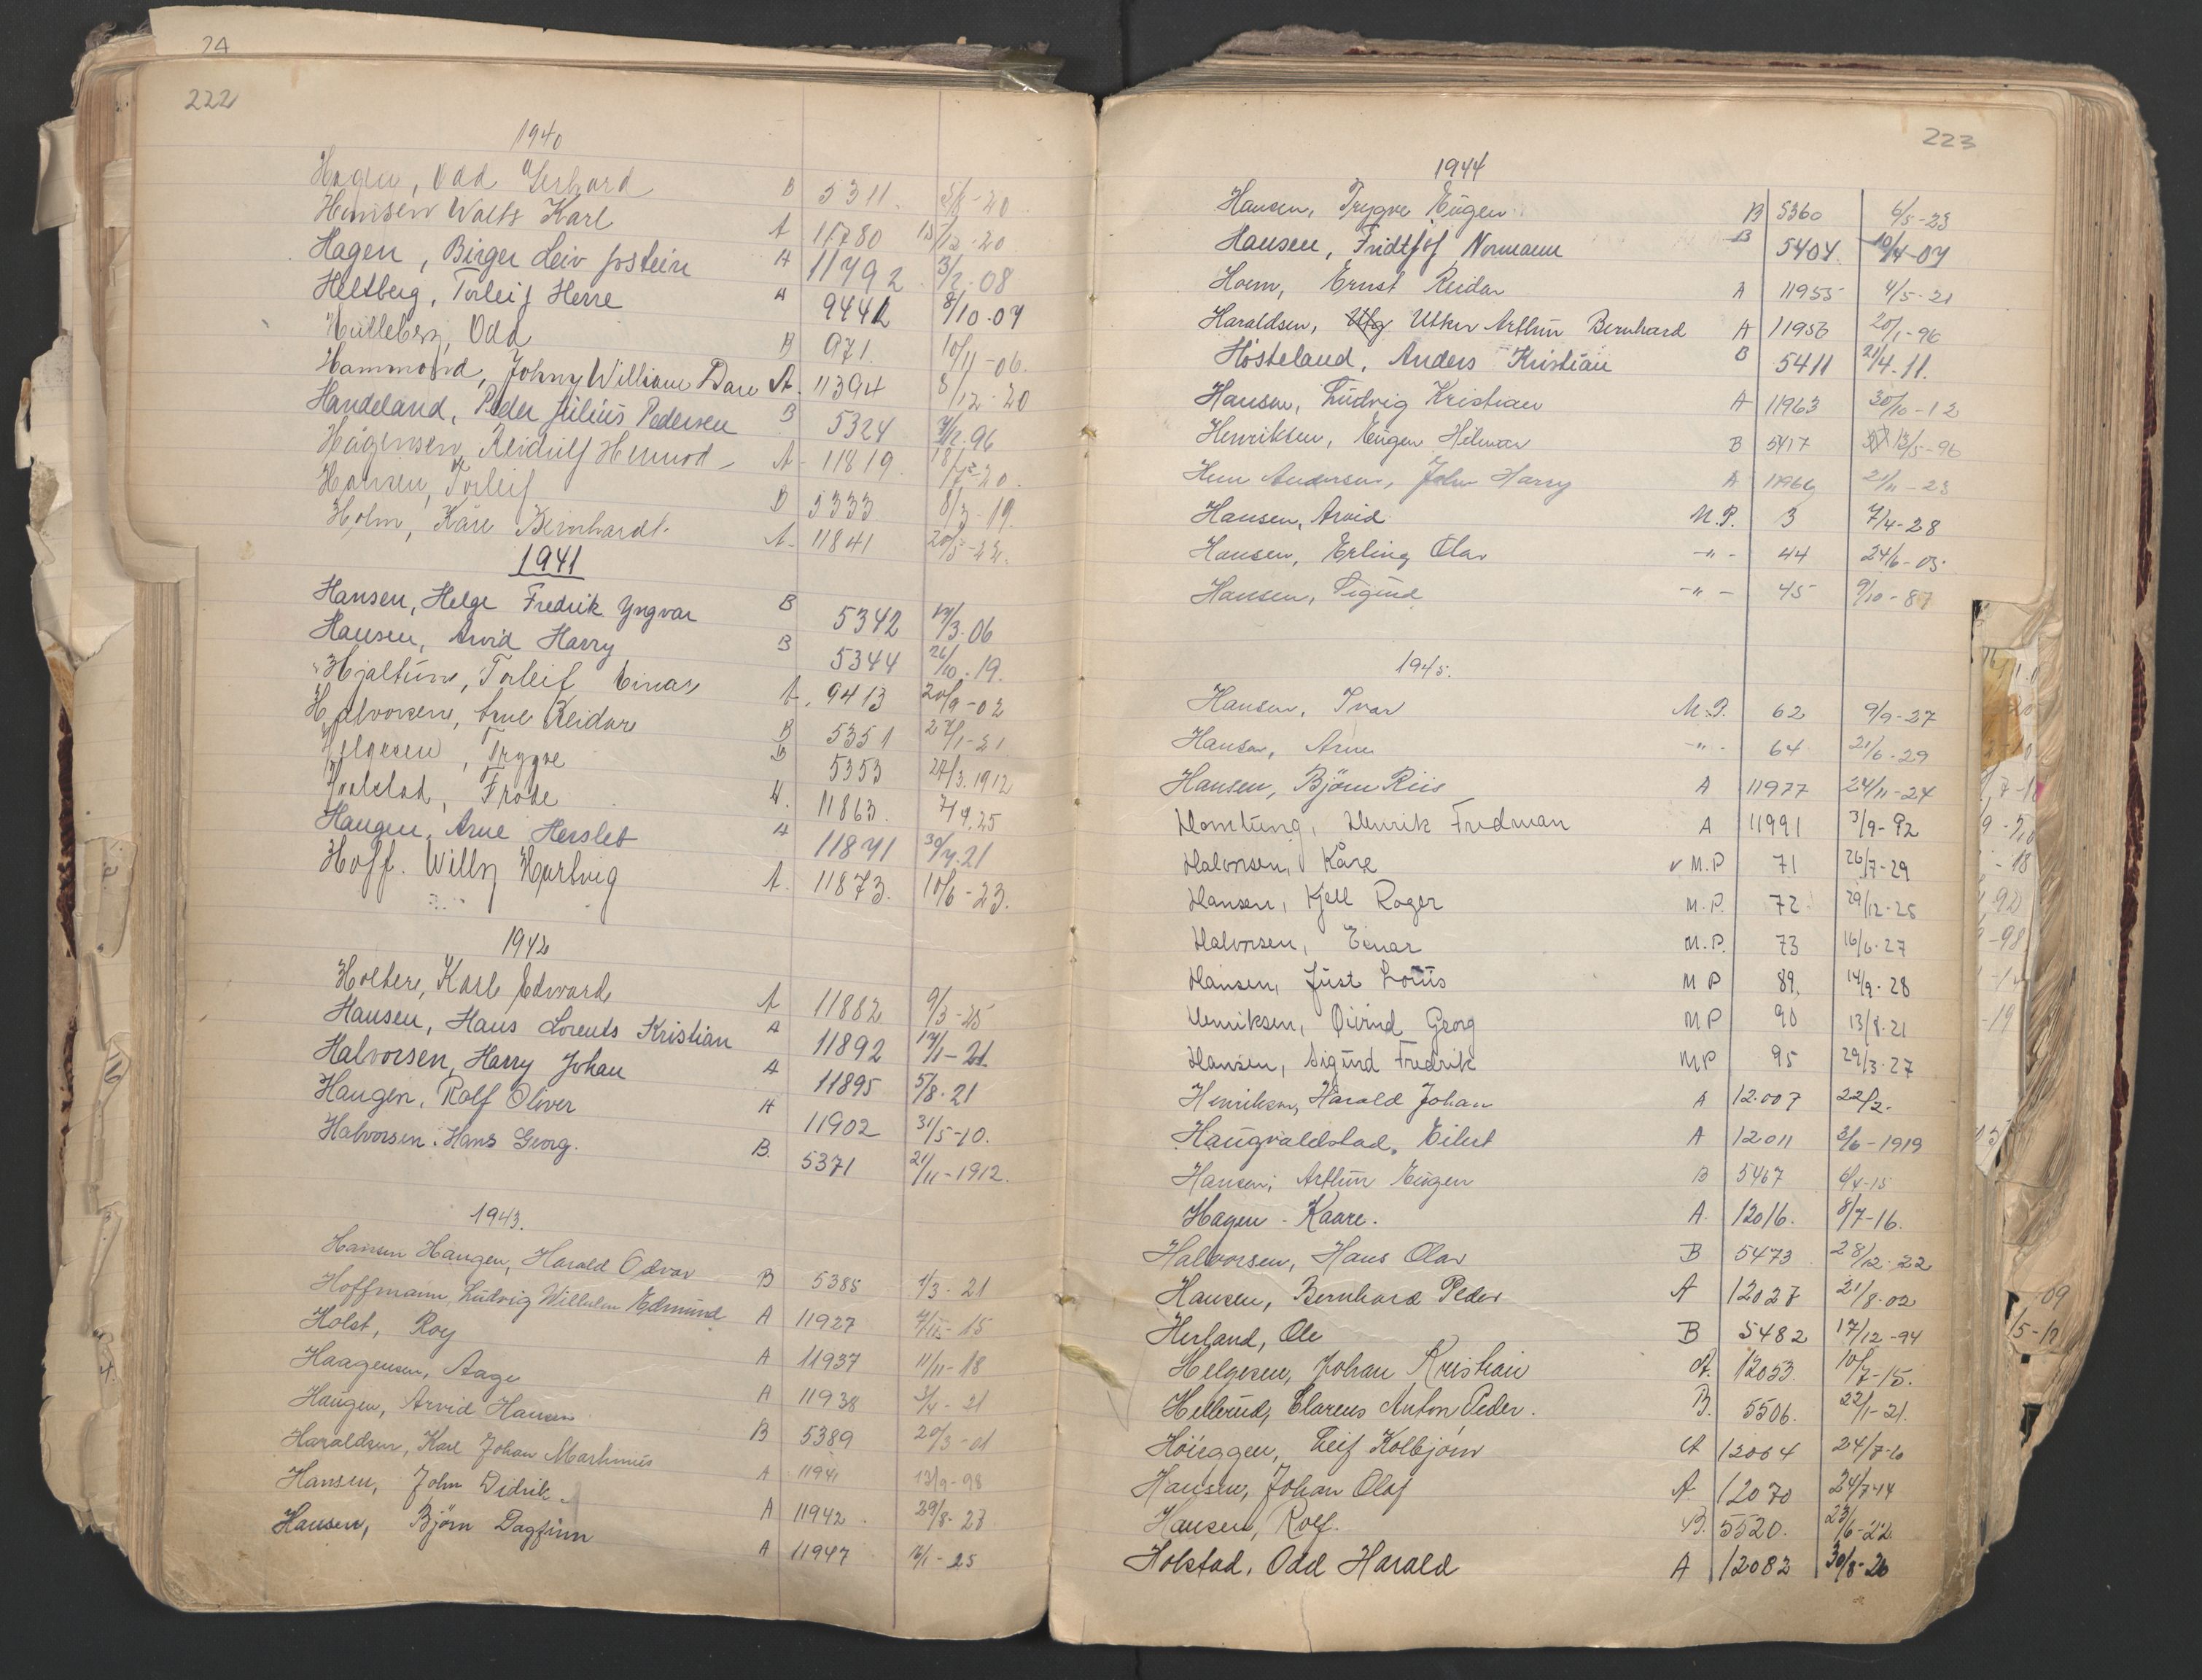 24
222
1940
Hagen, Odd Gerhard B 5311. 5/8-20
Hansen Walts Karl A 11780 15/12-20
Hagen, Birger Leiv Jostein A 11792 3/2-08
Heltberg, Torleif Herre A 9442 8/10-07
Hulleberg, Odd B 971. 10/11-06.
Hammond, Johny William Dare A. 11394 8/12-20
Handeland, Peder Julius Pedersen B 5324 7/12.96
Hågensen, Reidulf Hermod A 11819 18/7-20.
Hansen, Torleif B 5333 8/3-19.
Holm, Kåre Bernhardt. A 11841 20/5-22.
1941
Hansen, Helge Fredrik Yngvar B 5342 17/3.06
Hansen, Arvid Harry B 5344 26/10-19.
Hjaltun, Torleif Einar A. 9413 20/9-02
Halvorsen, Arne Reidar B 5351 27/1-21
Helgesen, Trygve B 5353 27/3.1912
Holstad, Frode A. 11863. 7/9.25
Haugen, Arne Herslet A 11871 30/7.21
Hoff. Willy Hartvig A. 11873. 10/6-23.
1942
Holtere, Karl Edward A 11882 9/3-25
Hansen, Hans Lorents Kristian A 11892 17/1-21
Halvorsen, Harry Johan A 11895 5/8-21
Haugen, Rolf Oliver A 11902 31/5-10.
Halvorsen. Hans Georg. B. 5371 21/11-1912.
1943.
Hansen Haugen, Harald Odvar B 5385 1/3-21
Hoffmann, Ludvig Wilhelm Edmund A 11927 -15
Holst, Roy A 11937 11/11-18
Haagensen, Aage A 11938 5/4-21
Haugen, Arvid Hansen B 5389 20/3-01
Haraldsen, Karl Johan Martinius A 11941 13/9-98
Hansen, John Didrik A 11942 29/8-23
Hansen, Björn Dagfinn A 11947 16/1-25
223
1944
Hansen, Trygve Eugen B 5360 6/5-23
Hansen, Fridtjof Normann B 5404. 10/4-07
Hoem, Ernst Reidar A 11955 4/5-21
Haraldsen, Utker Arthur Bernhard A 11956 20/1-96
Hösteland, Anders Kristian B 5411 21/4.11.
Hansen, Ludvig Kristian A 11963 30/10-12
Henriksen, Eugen Hilmar B 5417 13/5-96
Hem Andersen, John Harry A 11966 21/11-23
Hansen, Arvid M.P. 3 7/4-28
Hansen, Erling Olav -"- 44 24/6-05.
Hansen, Sigurd -"- 45 9/10-87
1945.
Hansen, Ivar M.P. 62 9/9-27
Hansen, Arne -"- 64 21/6-29
Hansen, Björn Riis A 11977 24/11-24
Homtung, Henrik Fredman A 11991 3/9-92
Halvorsen, Kåre v M.P 71 26/7-29
Hansen, Kjell Roger M.P. 72 29/12-25
Halvorsen, Einar M.P. 73 16/6-27
Hansen, Just Louis M P 89, 14/9-28
Henriksen, Øivind Georg M P 90 13/8-21
Hansen, Sigurd Fredrik MP 95 29/3-27
Henriksen, Harald Johan A 12.007 22/2-
Haugvaldstad, Eilert A 12011 3/6-1919
Hansen, Arthur Eugen B 5467 6/4-15
Hagen - Kaare. A. 12016. 8/7-16.
Halvorsen, Hans Olav B 5473 28/12-22
Hansen, Bernhard Peder A 12027 21/8-02
Herland, Ole B 5482 17/12-94
Helgesen, Johan Kristian A. 12053. 10/7-15.
Hellerud, Clarens Anton Peder. B. 5506. 22/1-21.
Höieggen, Leif Kolbjörn A 12064 24/7-
Hansen, Johan Olaf A 12070 24/7-14
Hansen, Rolf. B. 5520. 23/6-22.
Holstad, Odd Harald A 12082 30/8-26